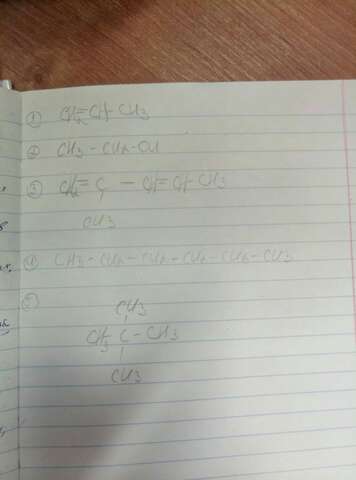 ① CH₂=CH-CH₃
② CH₃-CH₂-OH
③ CH₂=C-CH=CH-CH₃
CH₃
④ CH₃-CH₂-CH₂-CH₂-CH₂-CH₃
⑤
CH₃
CH₃-C-CH₃
CH₃